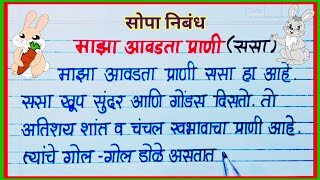 सोपा निबंध
माझा आवडता प्राणी (ससा)
माझा आवडता प्राणी ससा हा आहे.
ससा खूप सुंदर आणि गोंडस दिसतो. तो
अतिशय शांत व चंचल स्वभावाचा प्राणी आहे.
त्यांचे गोल-गोल डोळे असतात